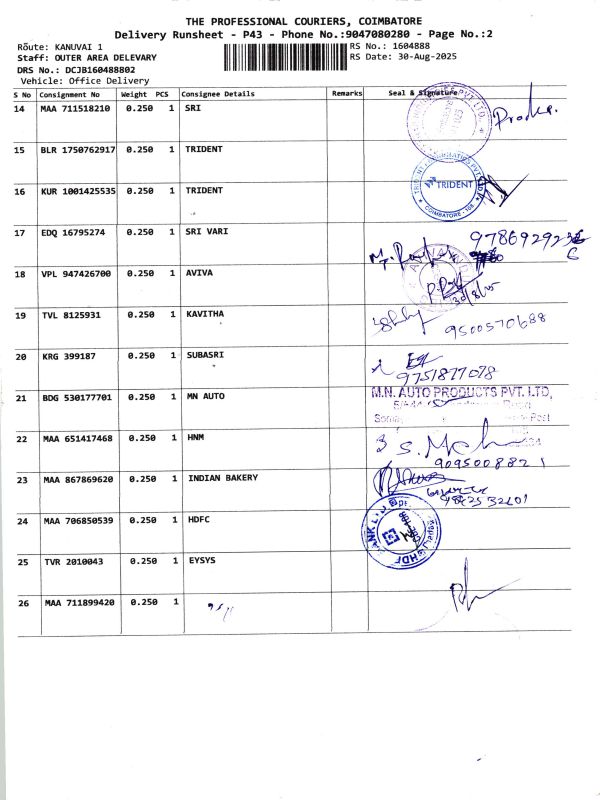 THE PROFESSIONAL COURIERS, COIMBATORE
Delivery Runsheet - P43 - Phone No.:9047080280 - Page No.:2
Route: KANUVAI 1
RS No.: 1604888
Staff: OUTER AREA DELEVARY
RS Date: 30-Aug-2025
DRS No.: DCJB160488802
Vehicle: Office Delivery
S No Consignment No Weight PCS Consignee Details Remarks Seal & Signature
14 MAA 711518210 0.250 1 SRI
15 BLR 1750762917 0.250 1 TRIDENT
16 KUR 1001425535 0.250 1 TRIDENT
TRIDENT
COIMBATORE
17 EDQ 16795274 0.250 1 SRI VARI
18 VPL 947426700 0.250 1 AVIVA
30/8/25
19 TVL 8125931 0.250 1 KAVITHA
9500570688
20 KRG 399187 0.250 1 SUBASRI
9751877078
21 BDG 530177701 0.250 1 MN AUTO
M.N. AUTO PRODUCTS PVT. LTD,
22 MAA 651417468 0.250 1 HNM
9095008821
23 MAA 867869620 0.250 1 INDIAN BAKERY
24 MAA 706850539 0.250 1 HDFC
25 TVR 2010043 0.250 1 EYSYS
26 MAA 711899420 0.250 1